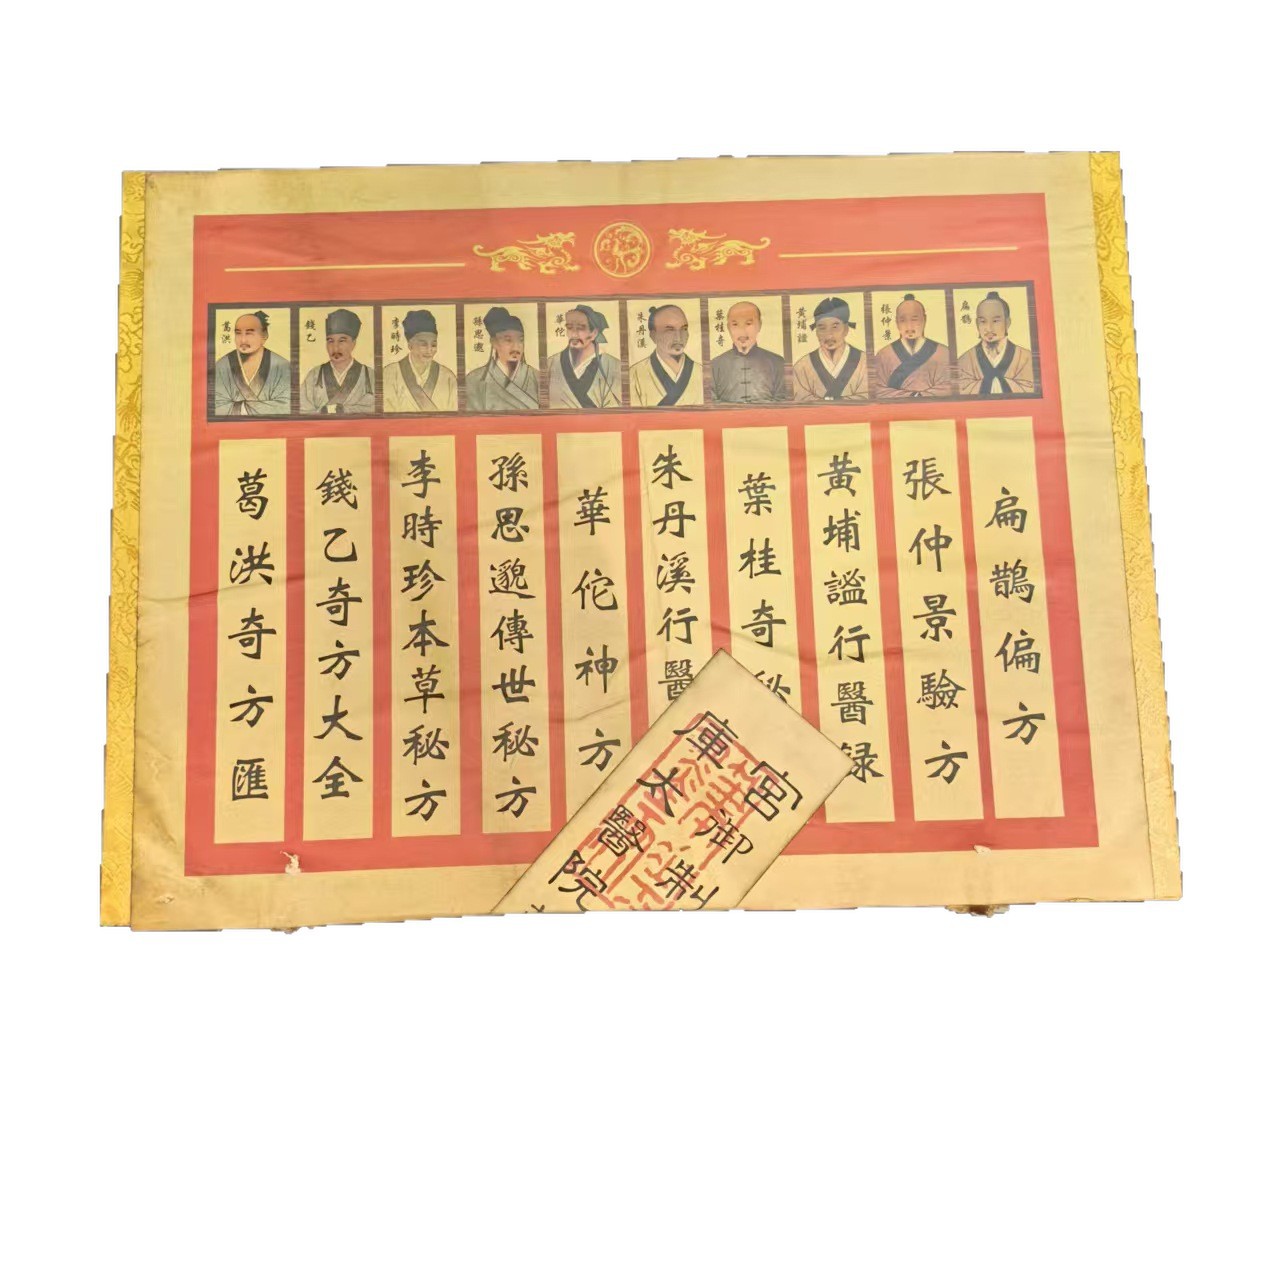 扁鵲
張仲景
黃埔謐
葉桂奇
朱丹溪
華佗
孫思邈
李時珍
錢乙
葛洪
扁鵲偏方
張仲景驗方
黃埔謐行醫録
葉桂奇
朱丹溪行醫
華佗神方
孫思邈傳世秘方
李時珍本草秘方
錢乙奇方大全
葛洪奇方匯
宮御制
庫太醫院